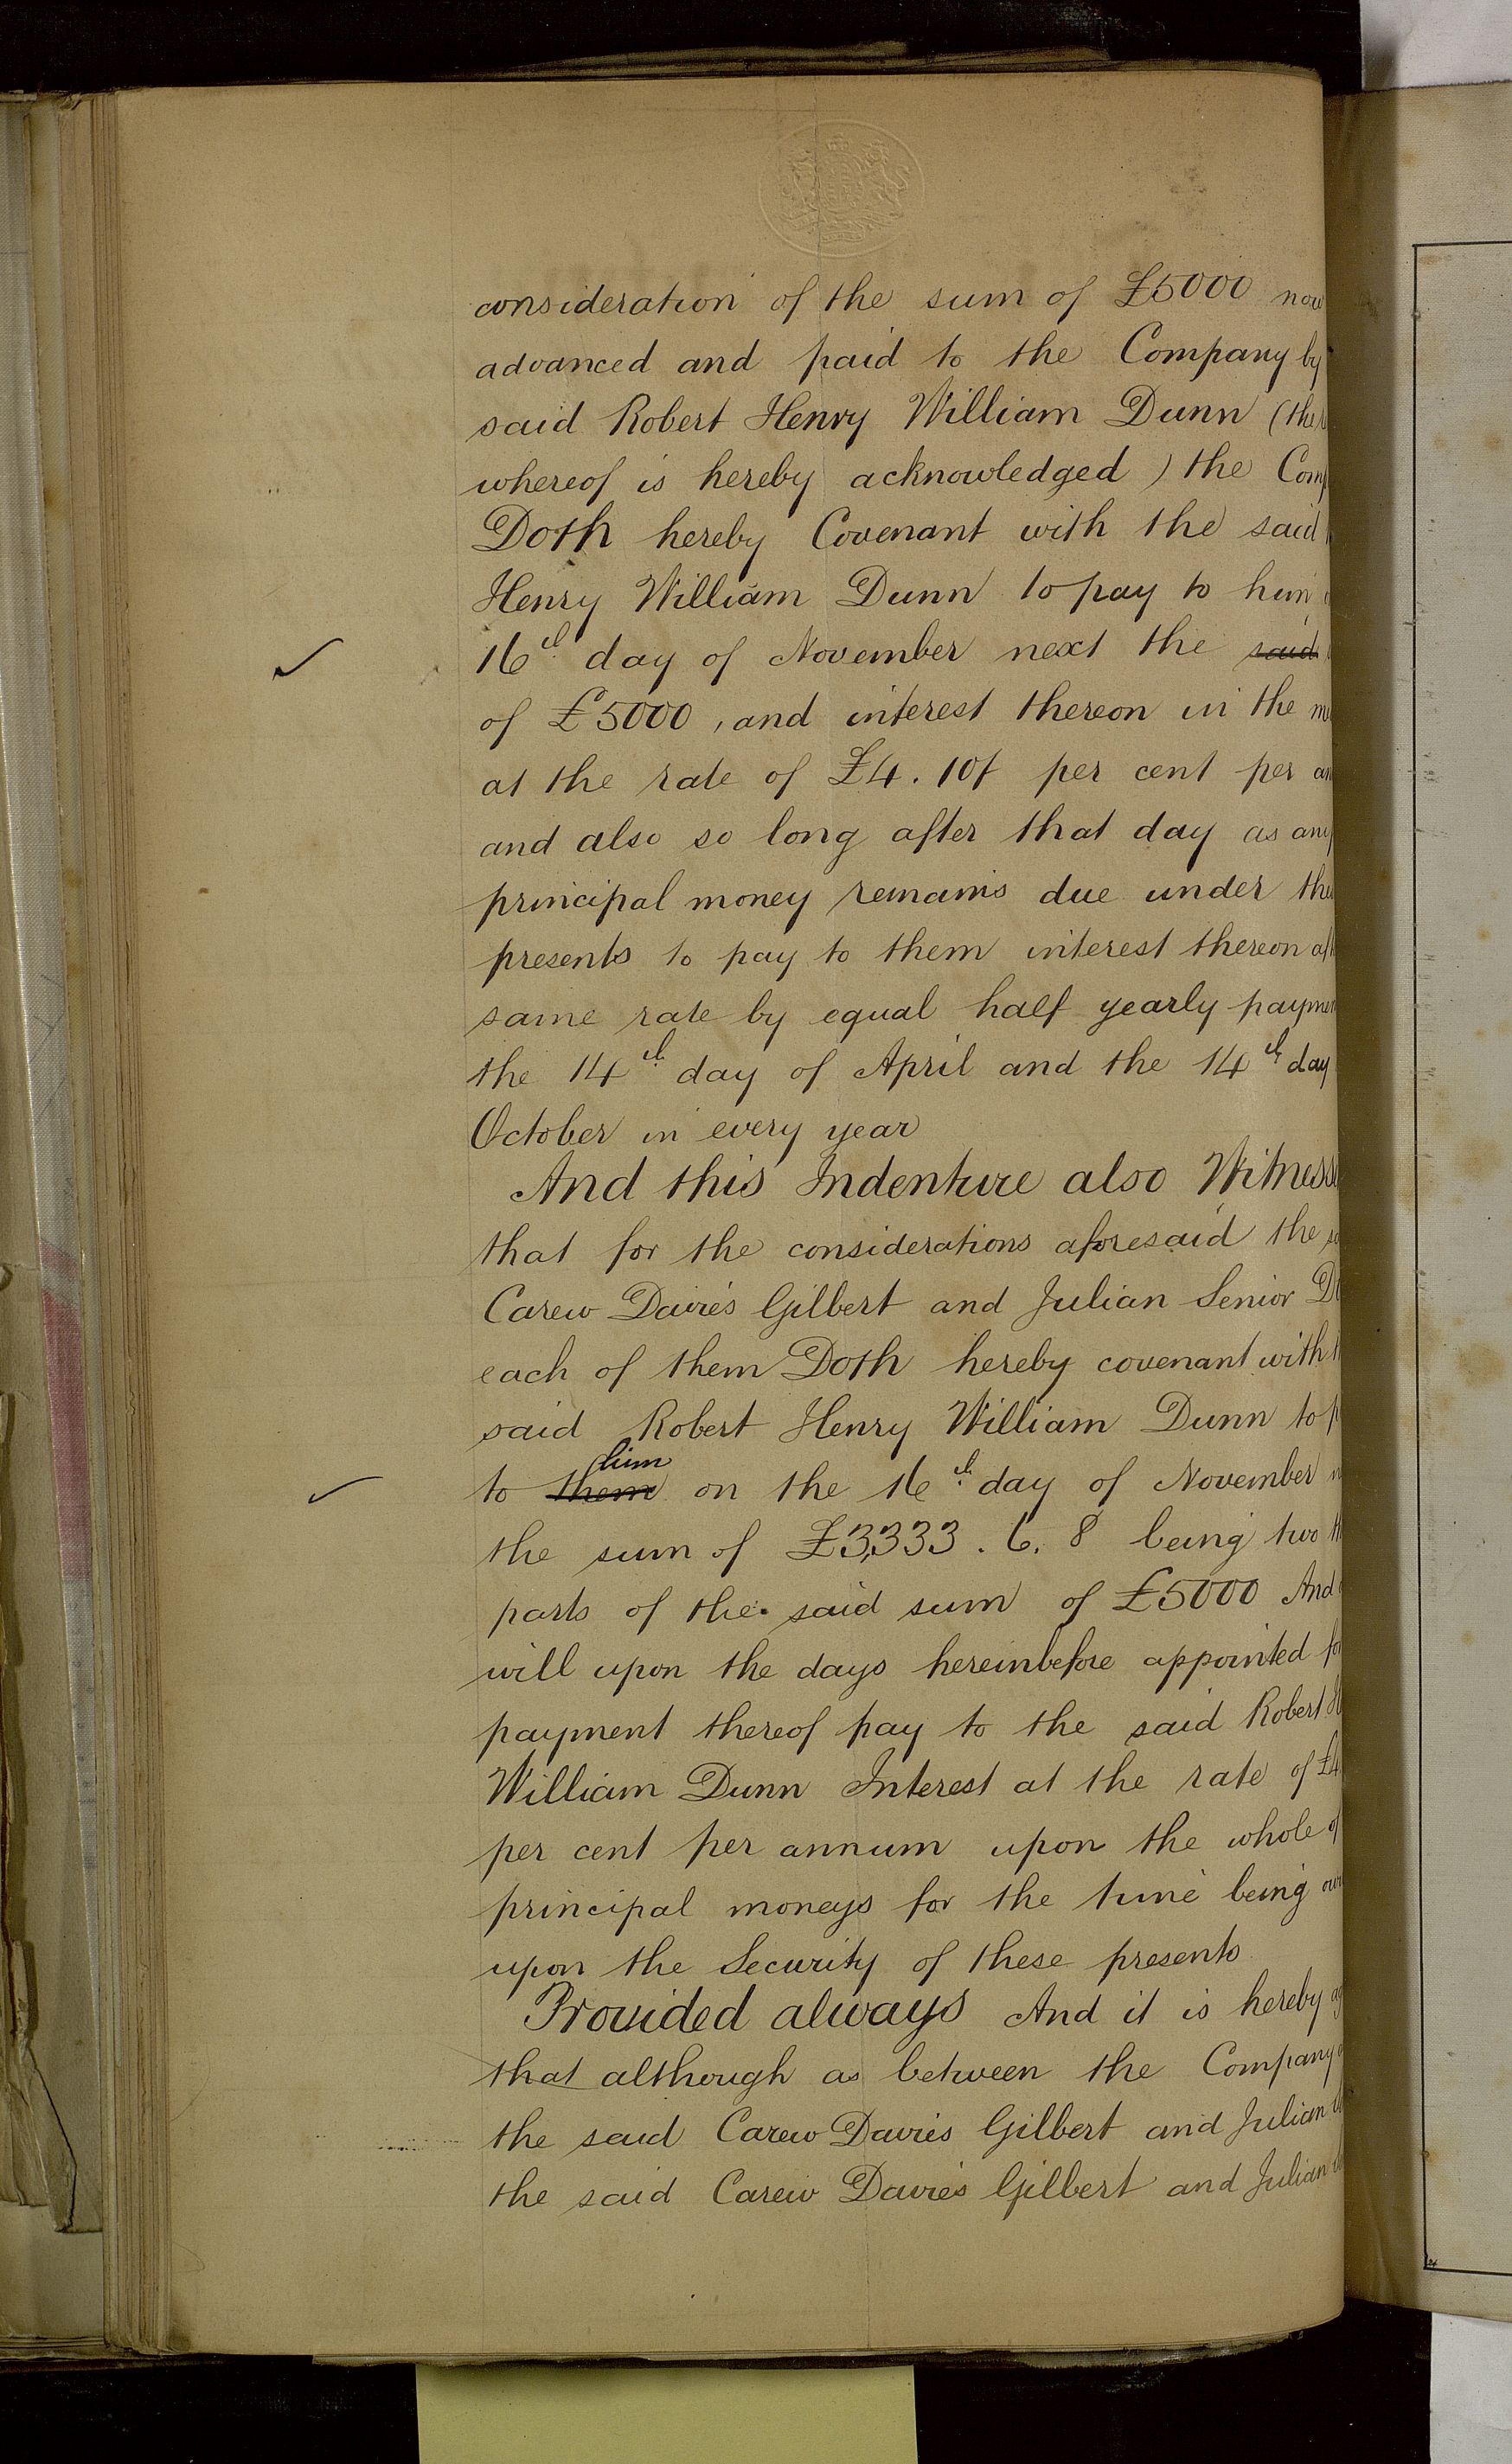 consideration of the sum of £5000 now
advanced and paid to the Company by
said Robert Henry William Dunn (the
whereof is hereby acknowledged) the Comp
Doth hereby Covenant with the said
Henry William Dunn to pay to him
16th day of November next the said
of £5000, and interest thereon in the
at the rate of £4.10/ per cent per an
and also so long after that day as any
principal money remains due under the
presents to pay to them interest thereon at
same rate by equal half yearly paymen
the 14th day of April and the 14th day
October in every year
And this Indenture also Witness
that for the considerations aforesaid the
Carew Davies Gilbert and Julian Senior
each of them Doth hereby covenant with
said Robert Henry William Dunn to
him
to them on the 16th day of November
the sum of £3,333.6.8 being two
parts of the said sum of £5000 And
will upon the days hereinbefore appointed fo
payment thereof pay to the said Robert
William Dunn Interest at the rate of £4
per cent per annum upon the whole of
principal moneys for the time being
upon the Security of these presents
Provided always And it is hereby
that although as between the Company
the said Carew Davies Gilbert and Julian
the said Carew Davies Gilbert and Julian